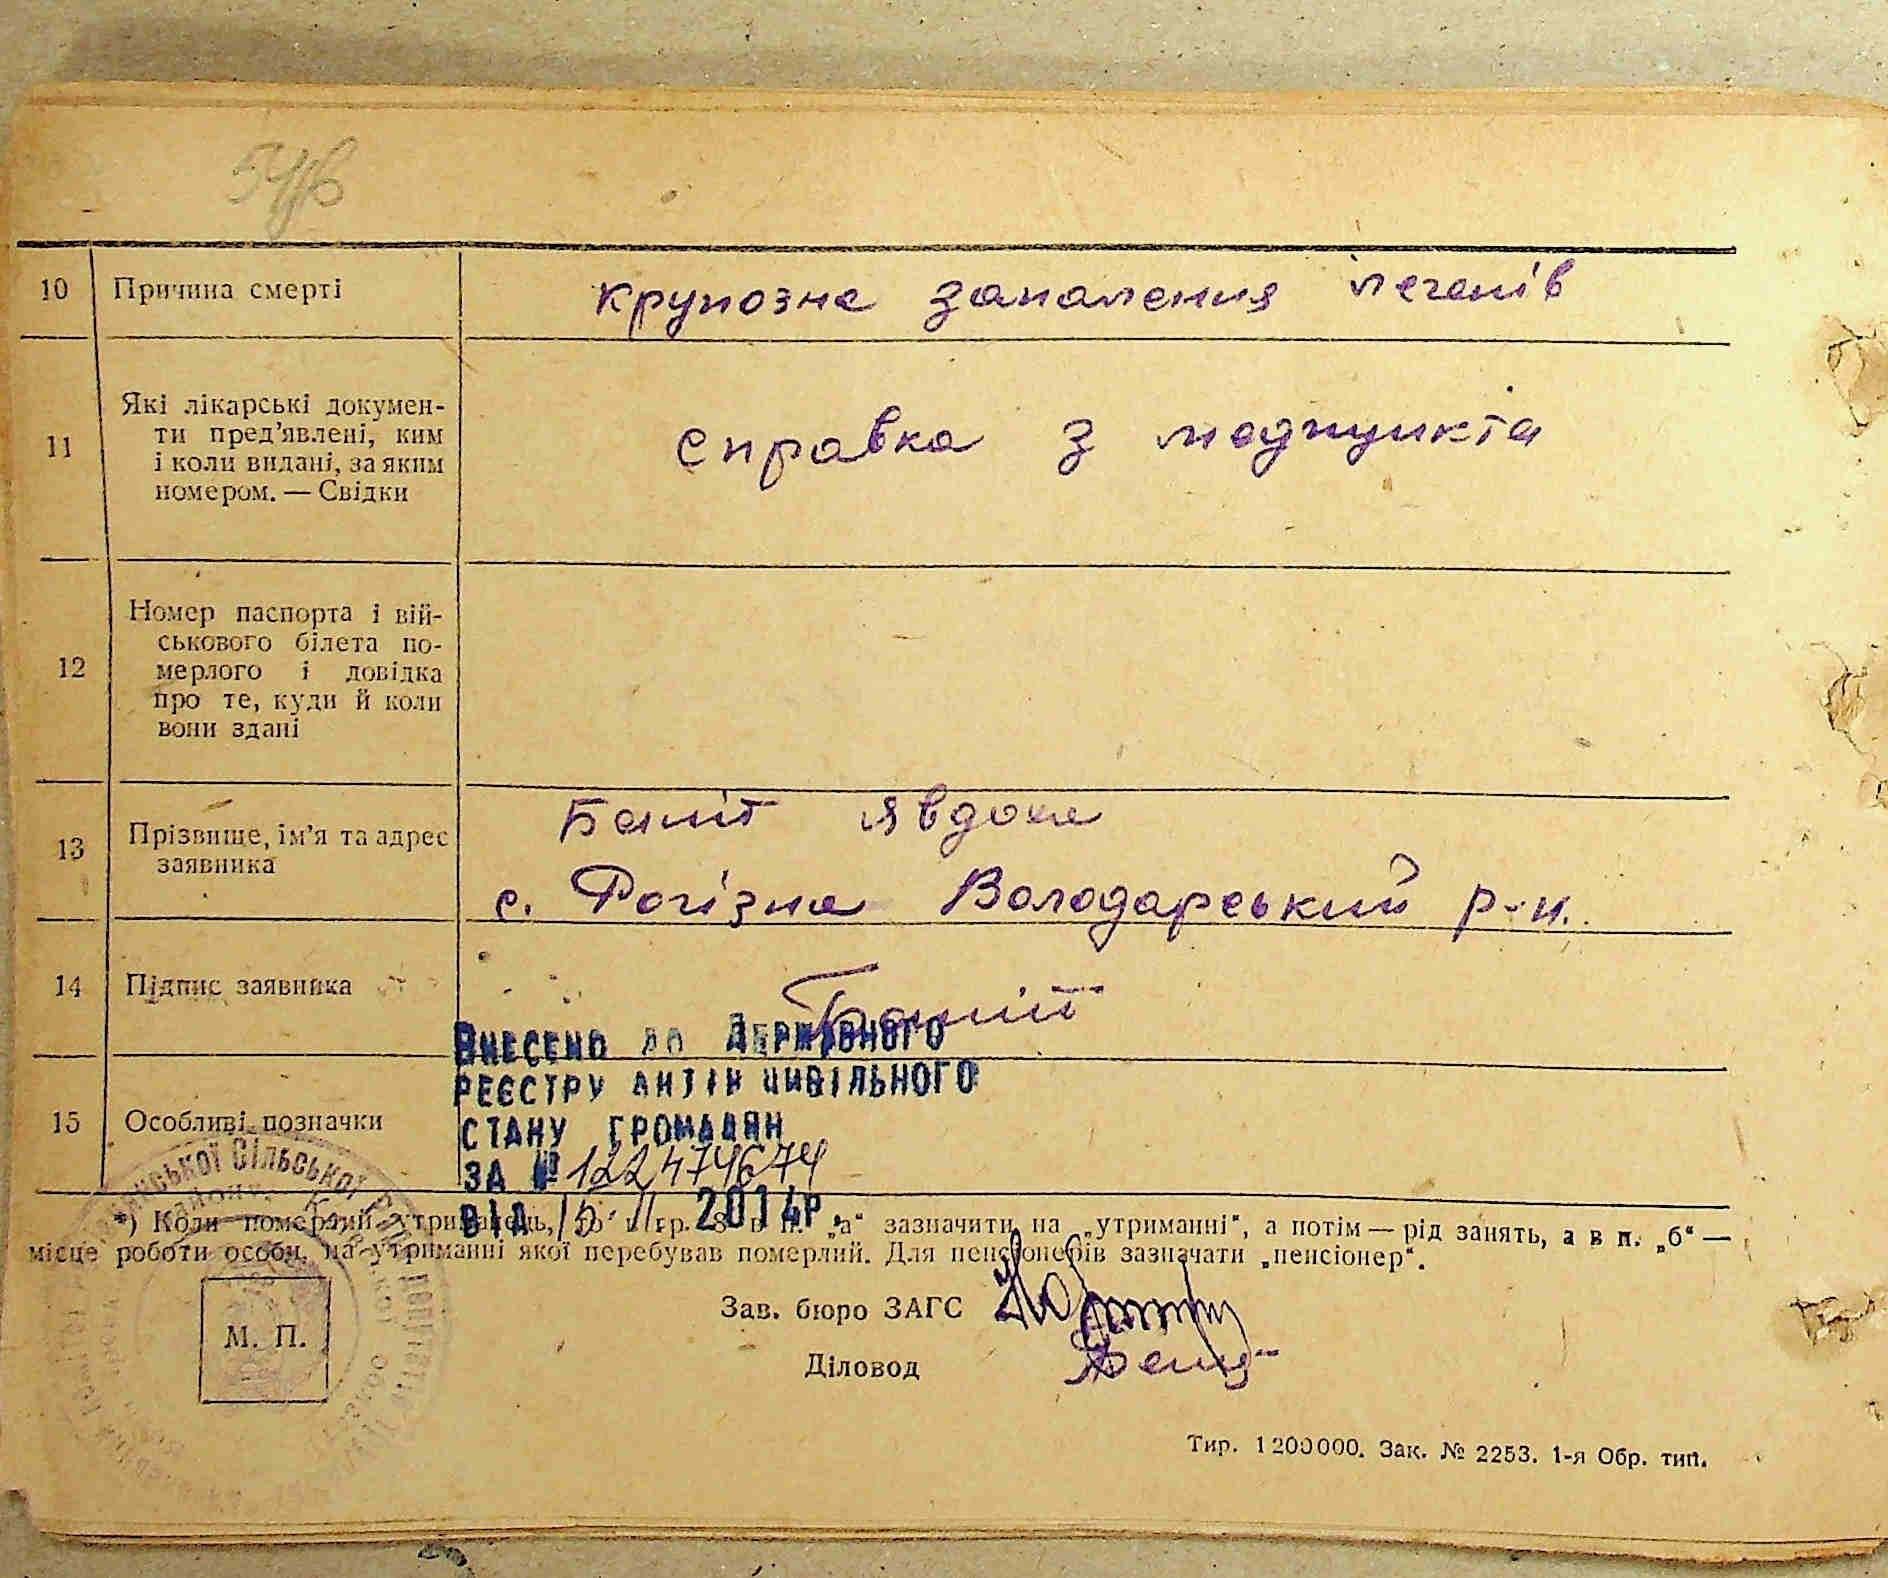 10 Причина смерті крупозне запалення легенів
11 Які лікарські докумен-
ти пред'явлені, ким
і коли видані, за яким
номером. — Свідки
справка з медпункта
12 Номер паспорта і вій-
ськового білета по-
мерлого і довідка
про те, куди й коли
вони здані
13 Прізвище, ім'я та адрес
заявника
Баніт Явдоха
с. Рогізна Володарський р-н.
14 Підпис заявника Баніт
ВНЕСЕНО ДО ДЕРЖАВНОГО
РЕЄСТРУ АКТІВ ЦИВІЛЬНОГО
15 Особливі позначки
СТАНУ ГРОМАДЯН
ЗА № 122474674
ВІД 15. 11. 2014р.
*) Коли померлий утриманець, то в гр. 8 в п. „а“ зазначити на „утриманні“, а потім — рід занять, а в п. „б“ —
місце роботи особи, на утриманні якої перебував померлий. Для пенсіонерів зазначати „пенсіонер“.
Зав. бюро ЗАГС
М. П.
Діловод
Тир. 1200000. Зак. № 2253. 1-я Обр. тип.